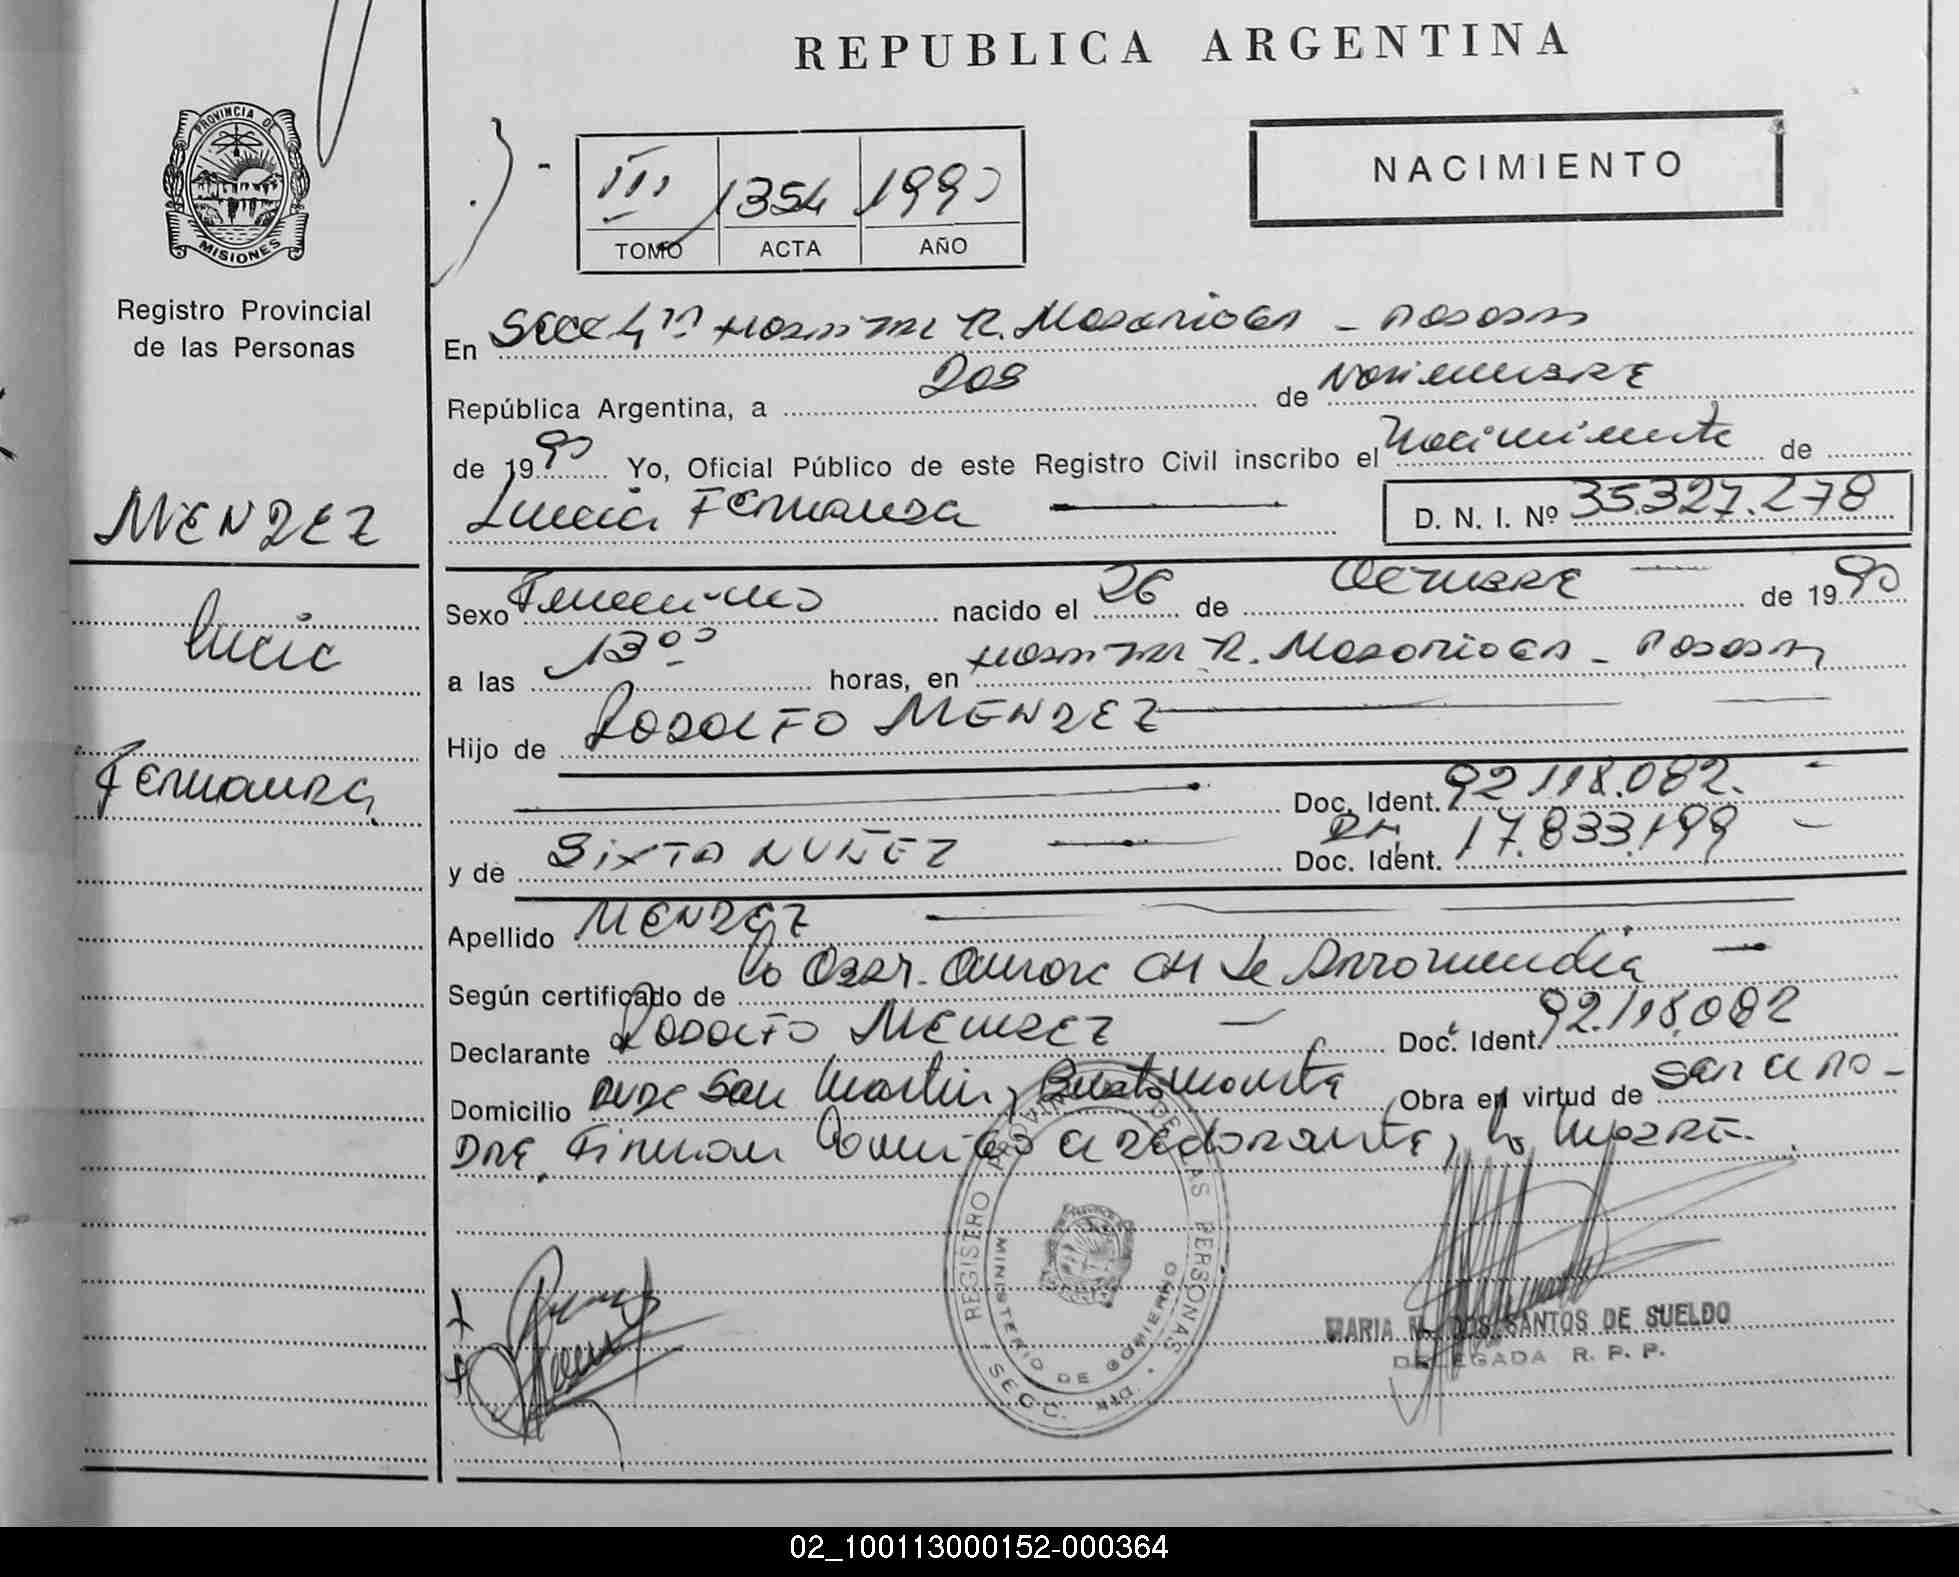 REPUBLICA ARGENTINA
PROVINCIA DE
MISIONES
Registro Provincial
de las Personas
III 1354 1990
TOMO ACTA AÑO
NACIMIENTO
En Secc 4ta Hospital R. Madariaga - Posadas
República Argentina, a Dos de Noviembre
de 1990 Yo, Oficial Público de este Registro Civil inscribo el Nacimiento de
Lucia Fernanda D. N. I. Nº 35.327.278
MENDEZ
Lucia
Fernanda
Sexo Femenino nacido el 26 de Octubre de 1990
a las 13 00 horas, en Hospital R. Madariaga - Posadas
Hijo de RODOLFO MENDEZ
Doc. Ident. 92.118.082.
y de SIXTA NUÑEZ Doc. Ident. 17.833.199
Apellido MENDEZ
Según certificado de la Obst. de Arromendia
Declarante RODOLFO MENDEZ Doc. Ident. 92.118.082
Domicilio San Martin y Obra en virtud de ser el Pa-
dre. Firman el declarante, y la Madre.
REGISERO PROVINCIAL DE LAS PERSONAS
MINISTERIO DE GOBIERNO
SECC. 4ta.
MARIA M. DOS SANTOS DE SUELDO
DELEGADA R. P. P.
02_100113000152-000364